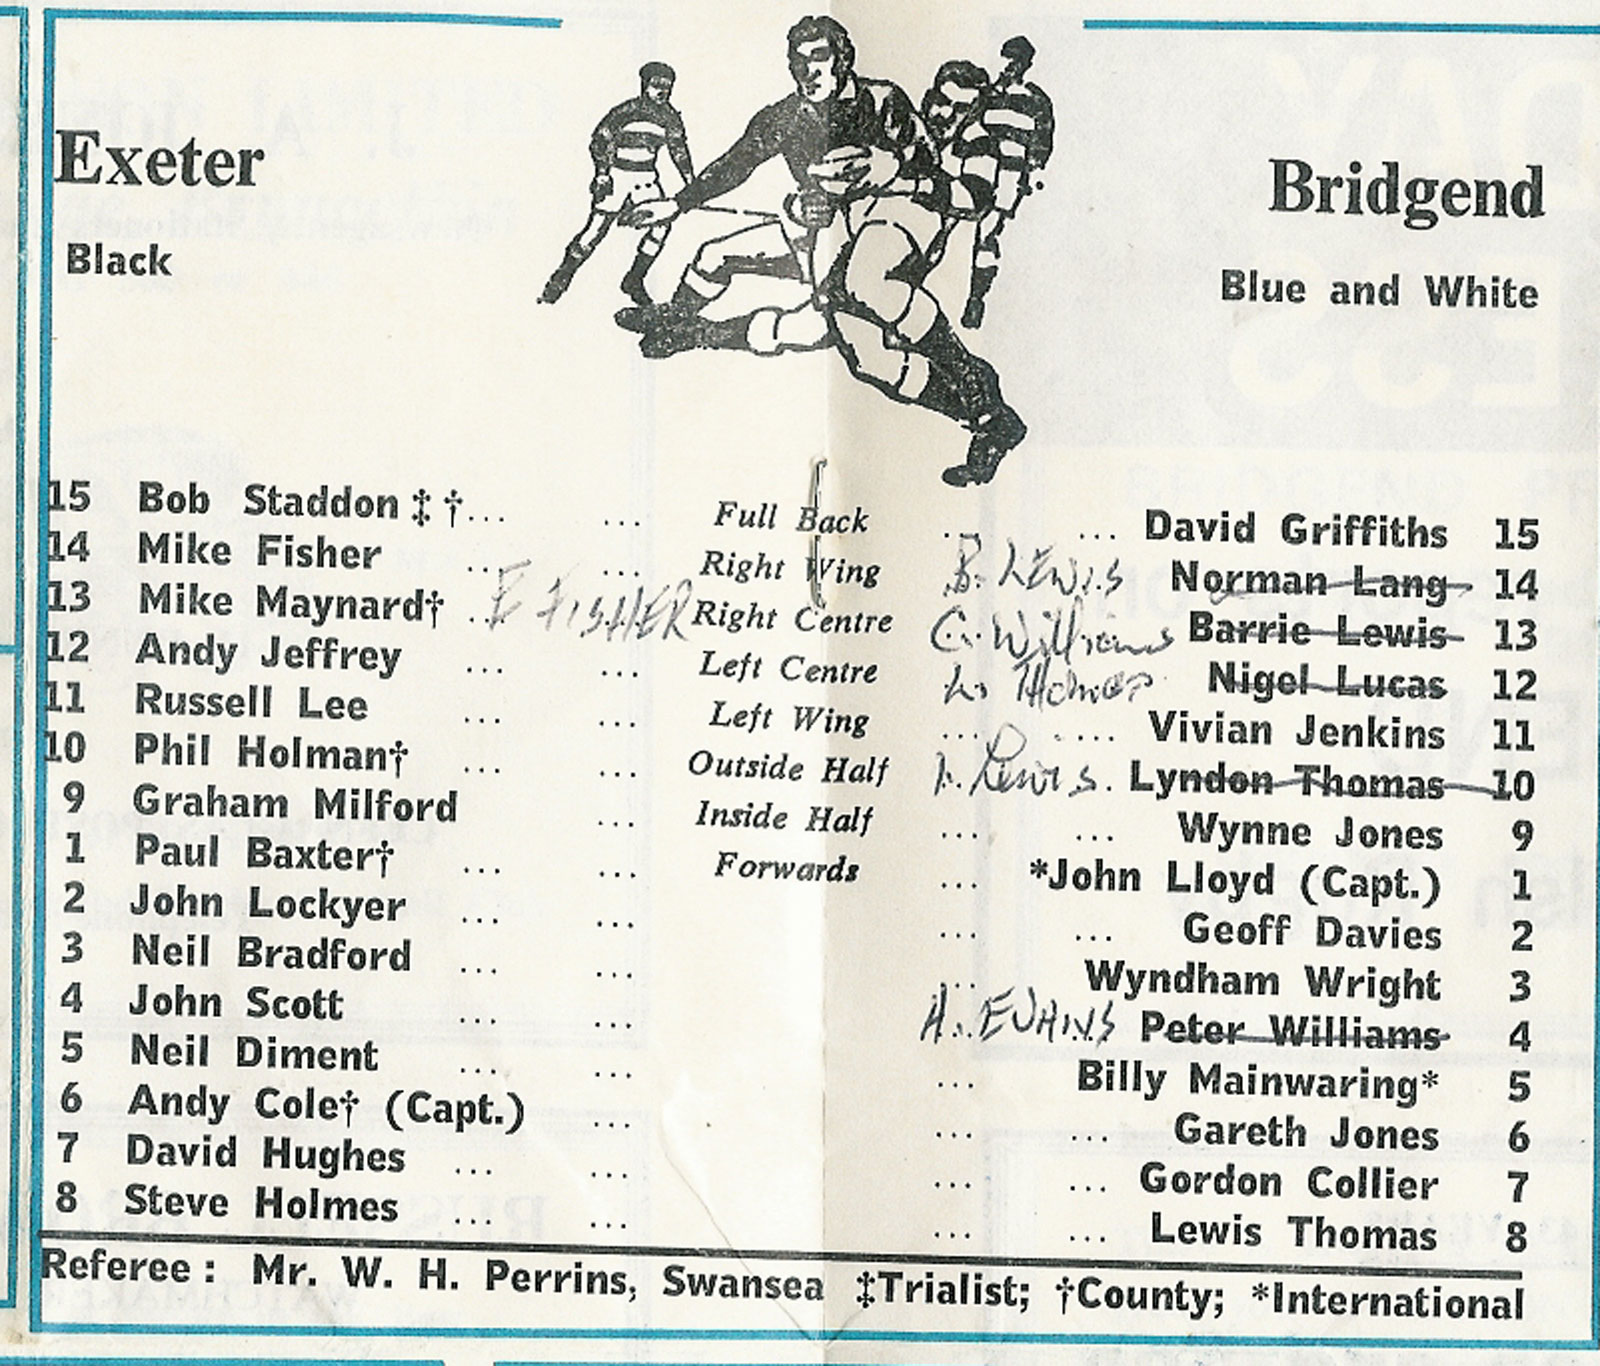 Exeter
Bridgend
Black
Blue and White
15 Bob Staddon‡† ... ... Full Back ... ... David Griffiths 15
14 Mike Fisher ... ... Right Wing B. LEWIS Norman Lang 14
13 Mike Maynard† ... F FISHER Right Centre C. Williams Barrie Lewis 13
12 Andy Jeffrey ... ... Left Centre L. THOMAS Nigel Lucas 12
11 Russell Lee ... ... Left Wing ... .... Vivian Jenkins 11
10 Phil Holman† ... ... Outside Half Lewis. Lyndon Thomas 10
9 Graham Milford ... Inside Half ... ... Wynne Jones 9
1 Paul Baxter† ... ... Forwards ... *John Lloyd (Capt.) 1
2 John Lockyer ... ... ... ... Geoff Davies 2
3 Neil Bradford ... ... ... Wyndham Wright 3
4 John Scott ... ... A. EVANS Peter Williams 4
5 Neil Diment ... ... ... Billy Mainwaring* 5
6 Andy Cole† (Capt.) ... ... ... Gareth Jones 6
7 David Hughes ... ... ... ... Gordon Collier 7
8 Steve Holmes ... ... ... ... Lewis Thomas 8
Referee: Mr. W. H. Perrins, Swansea ‡Trialist; †County; *International